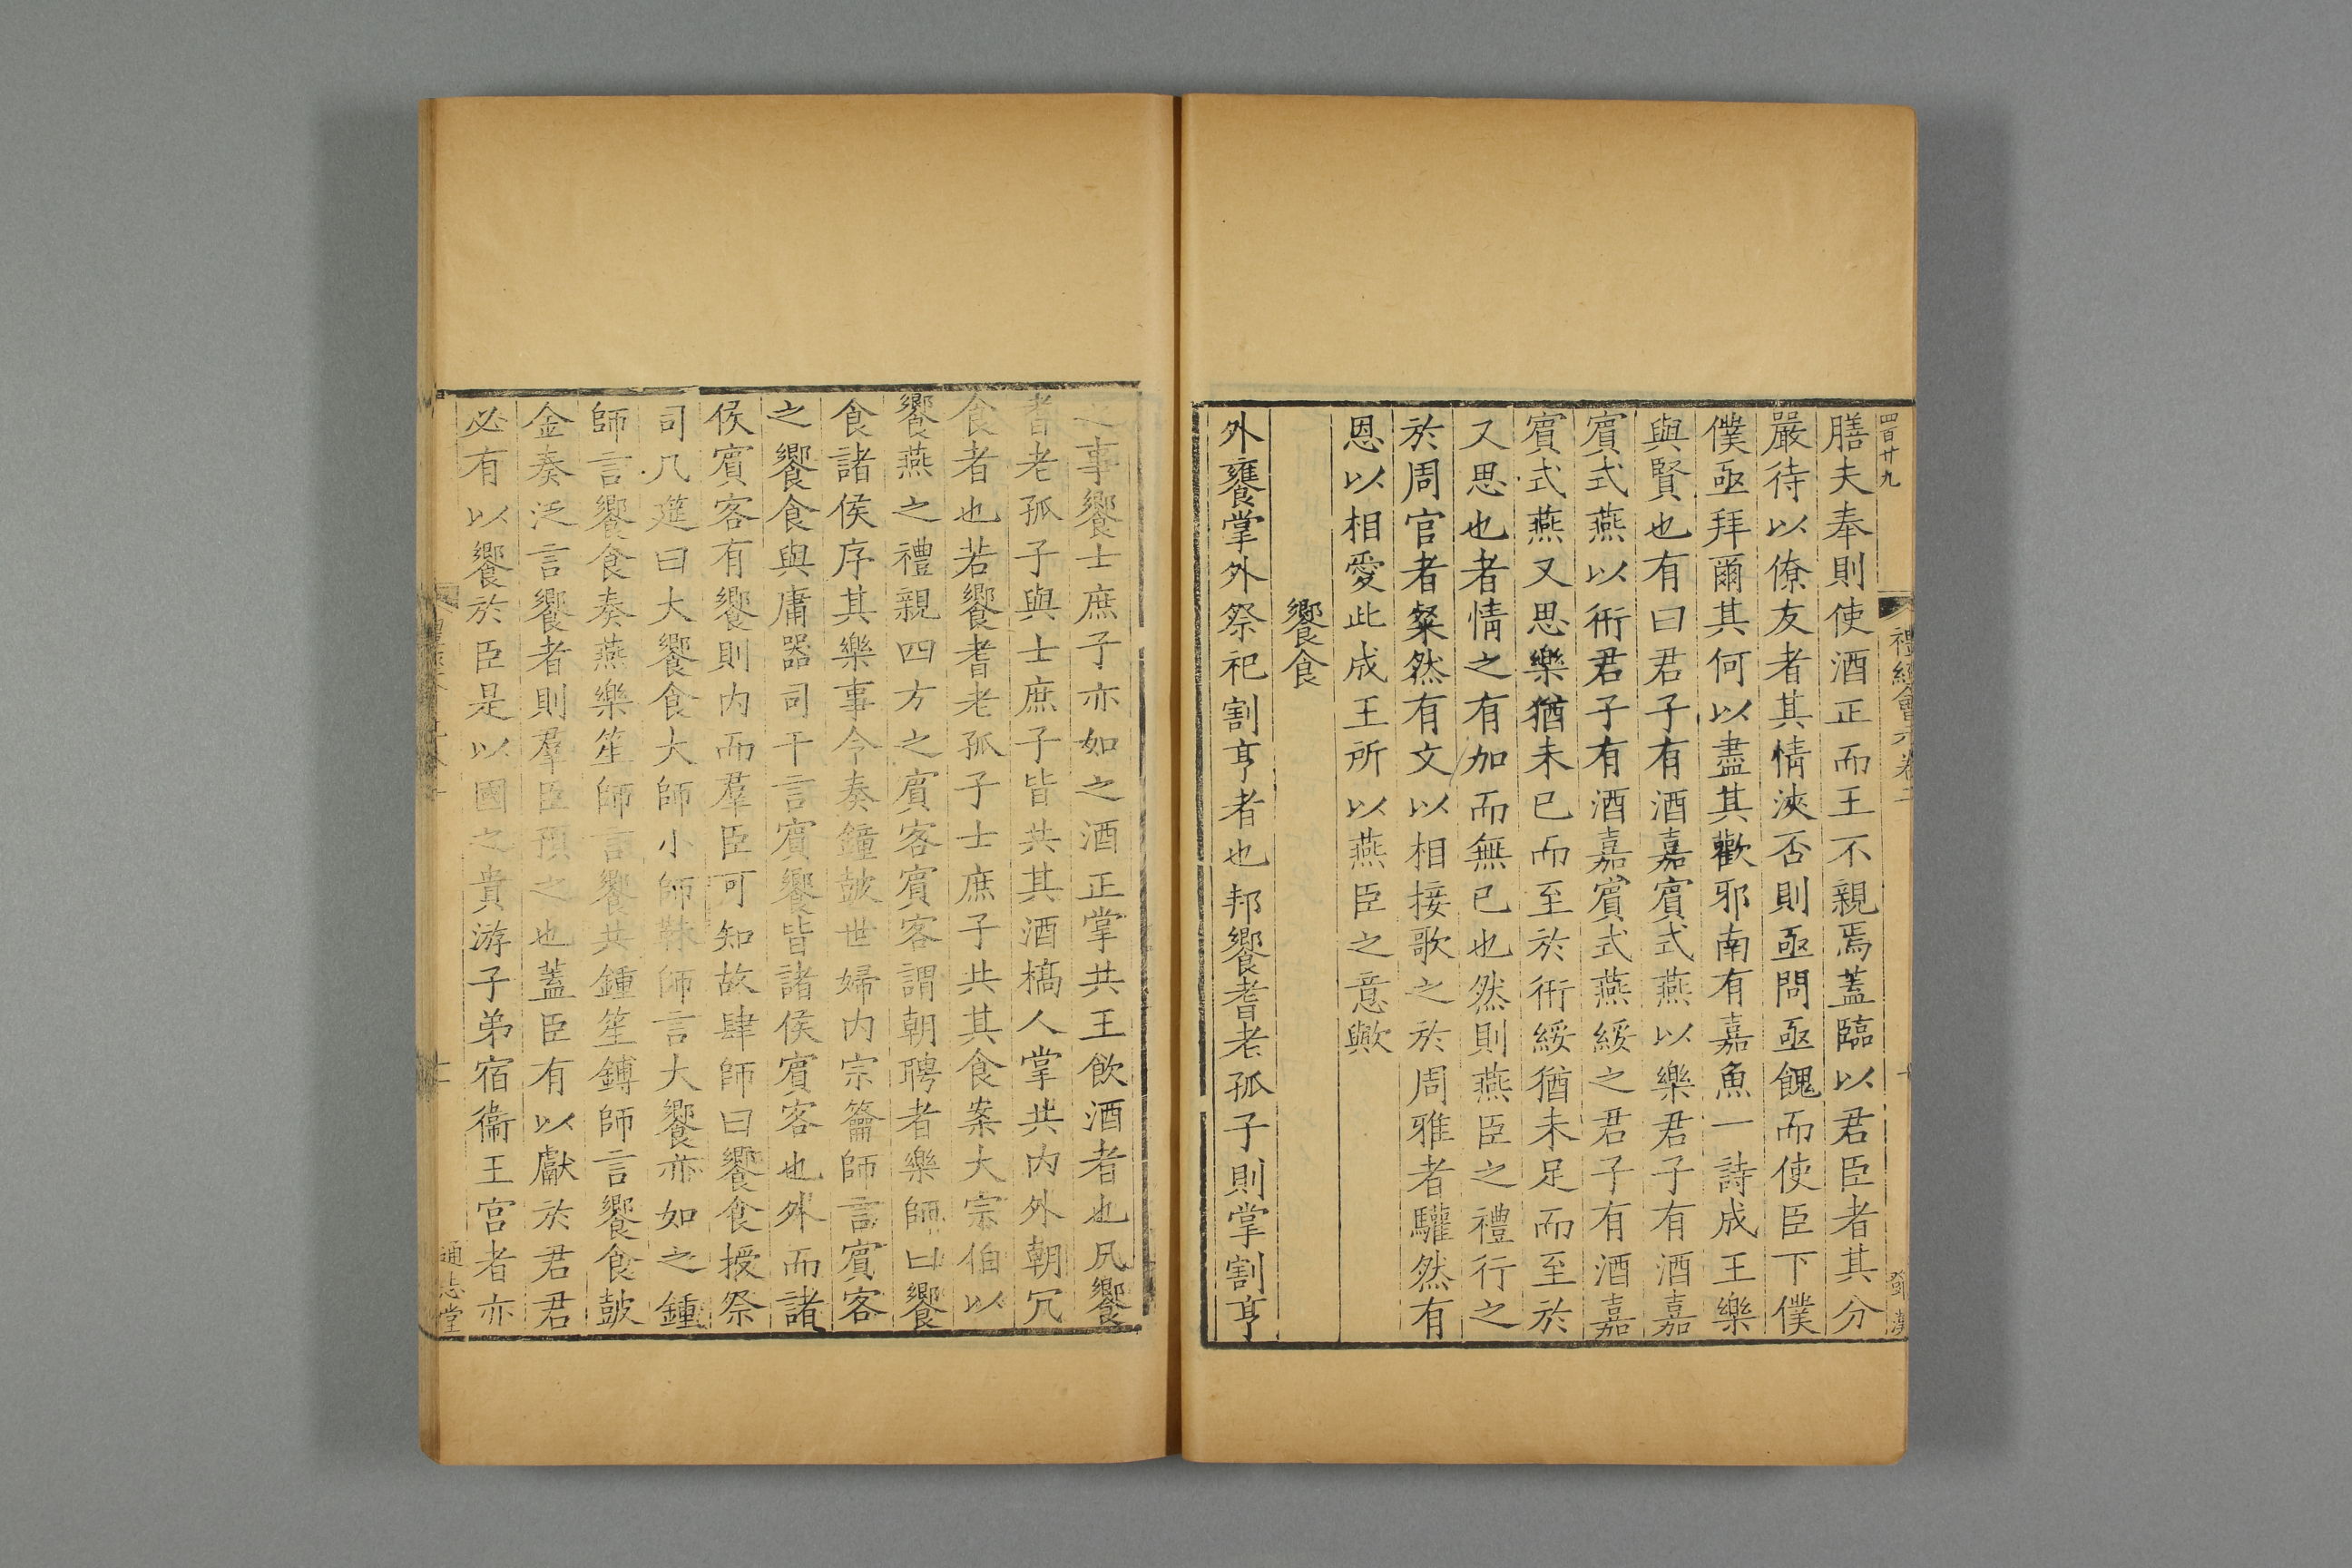 四百廿九
禮經會元卷二
十
膳夫奉則使酒正而王不親焉蓋臨以君臣者其分
嚴待以僚友者其情浹否則亟問亟餽而使臣下僕
僕亟拜爾其何以盡其歡邪南有嘉魚一詩成王樂
與賢也有曰君子有酒嘉賓式燕以樂君子有酒嘉
賓式燕以衎君子有酒嘉賓式燕綏之君子有酒嘉
賓式燕又思樂猶未已而至於衎綏猶未足而至於
又思也者情之有加而無已也然則燕臣之禮行之
於周官者粲然有文以相接歌之於周雅者驩然有
恩以相愛此成王所以燕臣之意歟
饗食
外饔掌外祭祀割亨者也邦饗耆老孤子則掌割亨
之事饗士庶子亦如之酒正掌共王飲酒者也凡饗
耆老孤子與士庶子皆共其酒槁人掌共内外朝冗
食者也若饗耆老孤子士庶子共其食案大宗伯以
饗燕之禮親四方之賓客賓客謂朝聘者樂師曰饗
食諸侯序其樂事令奏鐘鼓世婦内宗籥師言賓客
之饗食與庸器司干言賓饗皆諸侯賓客也外而諸
侯賓客有饗則内而羣臣可知故肆師曰饗食授祭
司几筵曰大饗食大師小師韎師言大饗亦如之鍾
師言饗食奏燕樂笙師言饗共鍾笙鎛師言饗食鼓
金奏泛言饗者則羣臣預之也蓋臣有以獻於君君
必有以饗於臣是以國之貴游子弟宿衞王宫者亦
十一
通志堂